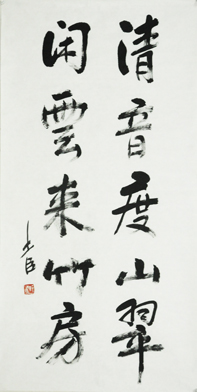 清音度山翠
闲雲来竹房